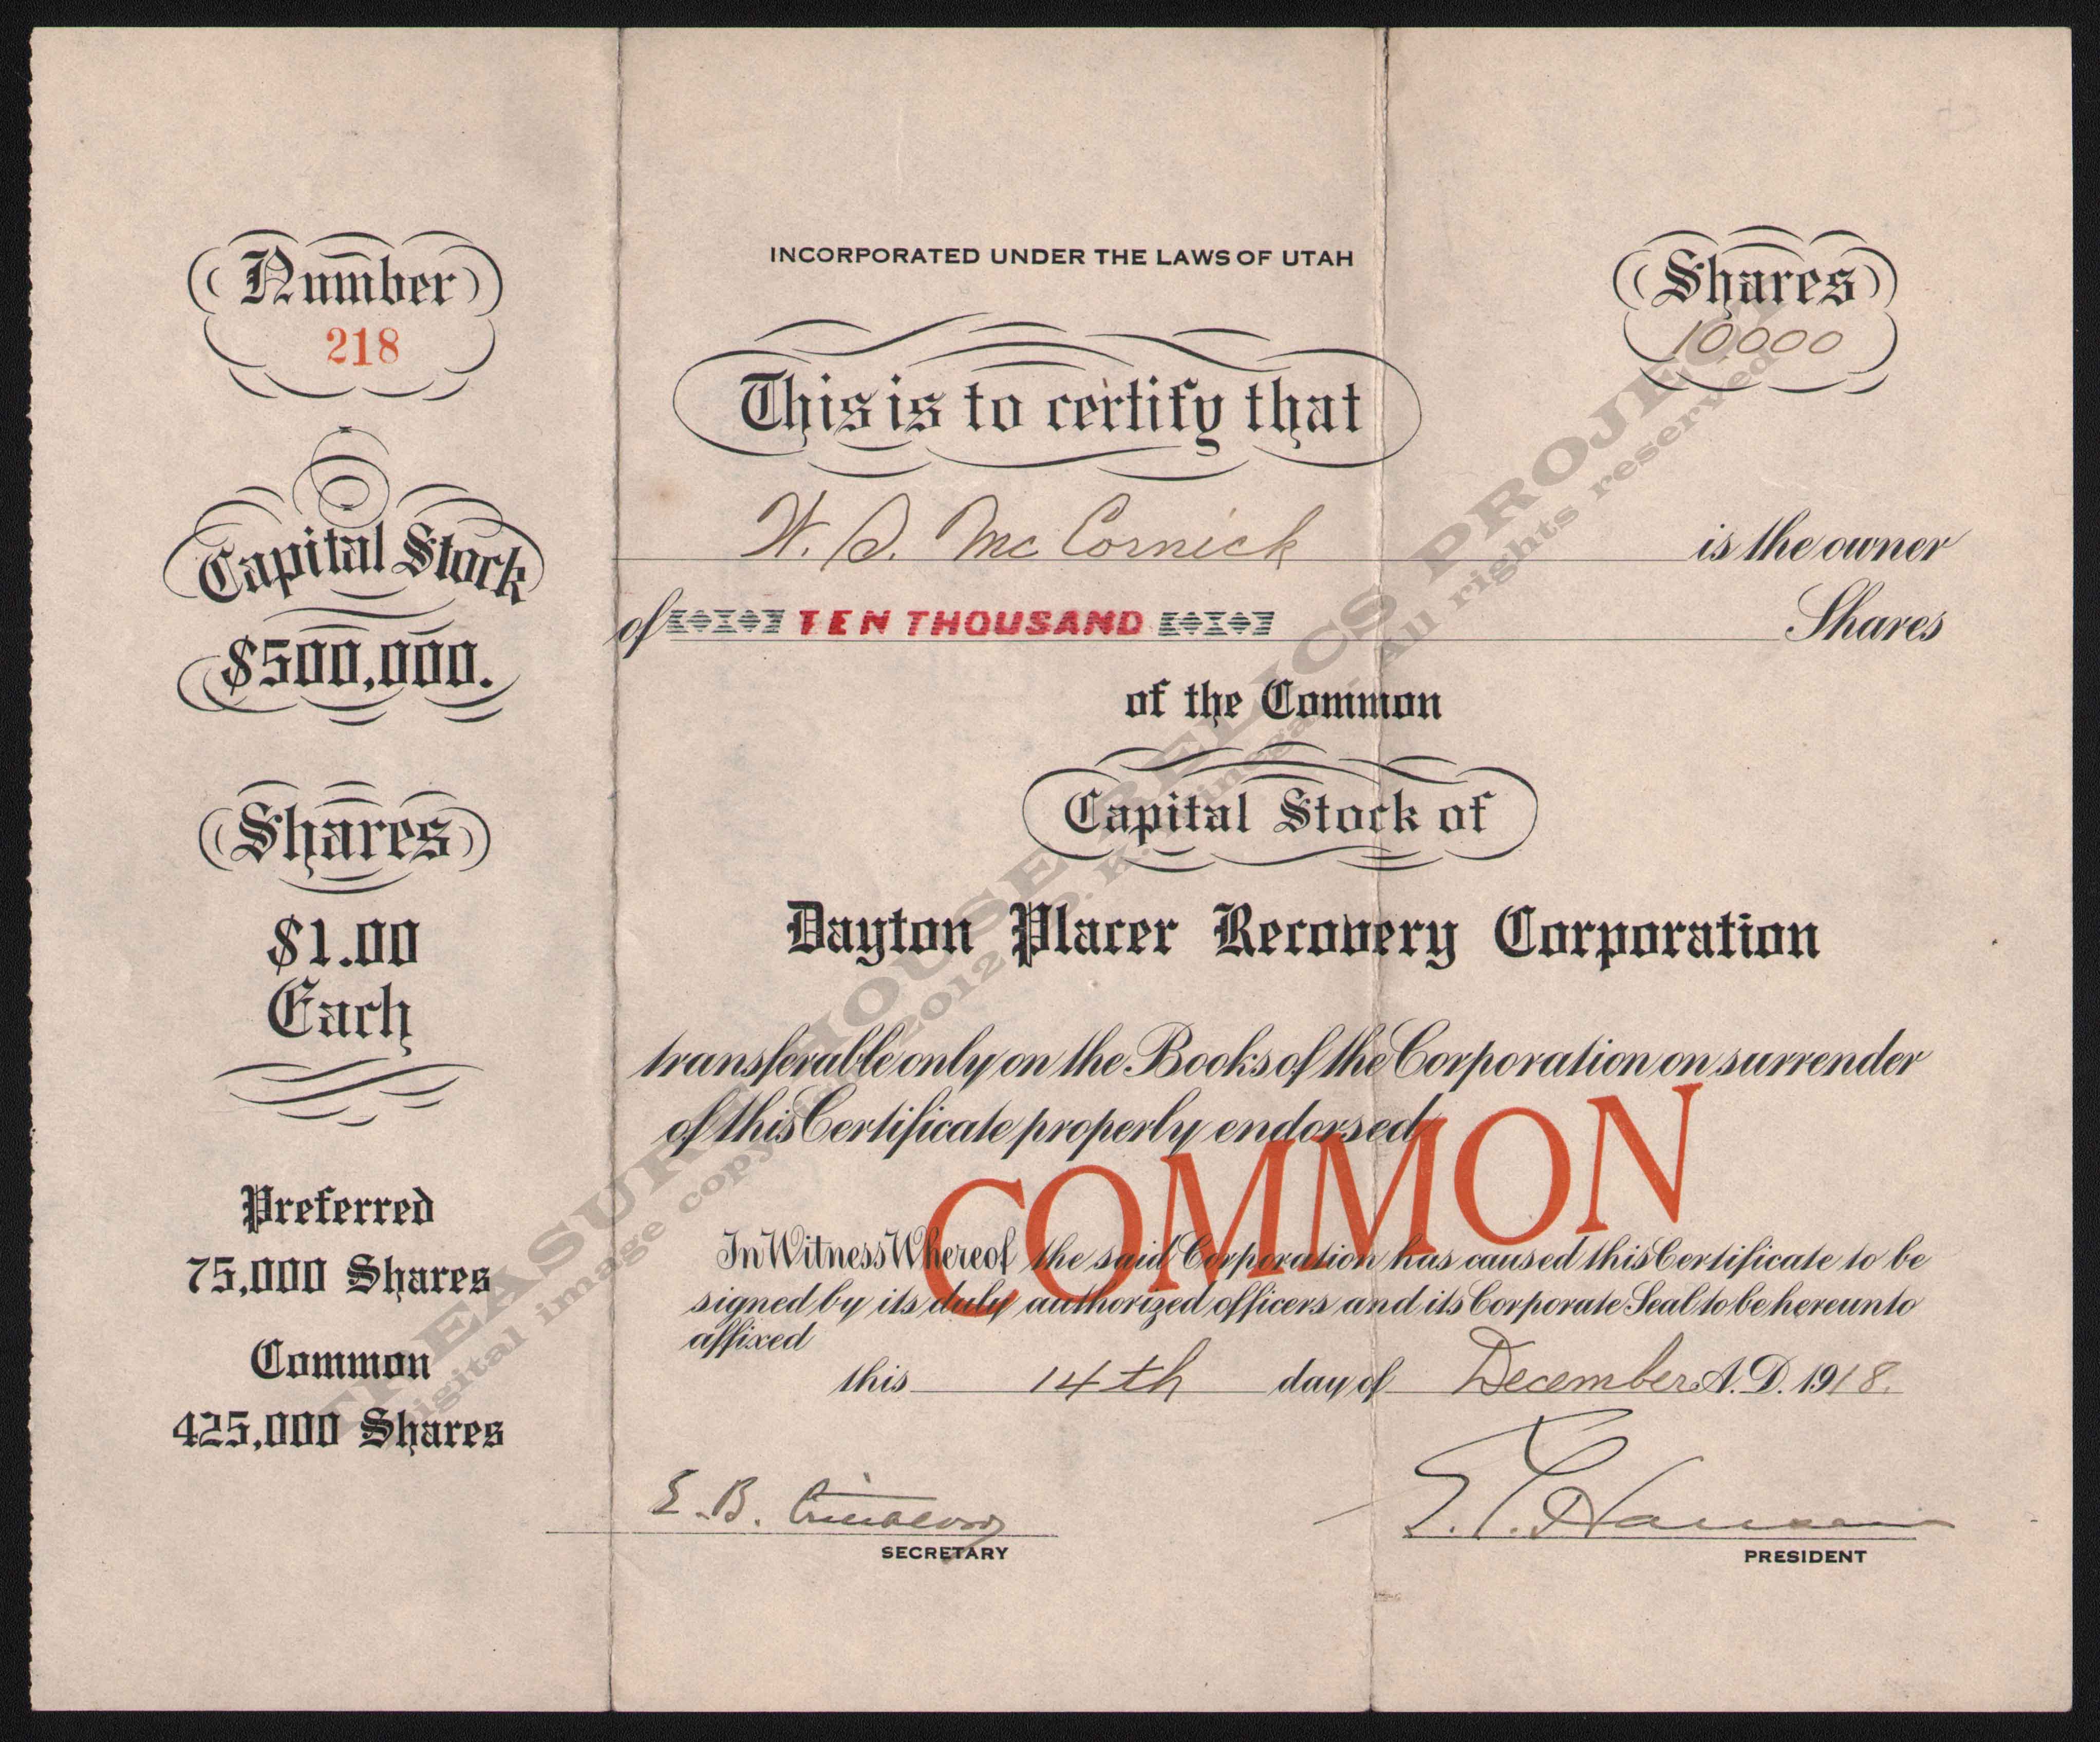 INCORPORATED UNDER THE LAWS OF UTAH
Number
218
Shares
10000
This is to certify that
W. S. McCornick is the owner
of TEN THOUSAND Shares
of the Common
Capital Stock of
Dayton Placer Recovery Corporation
transferable only on the Books of the Corporation on surrender
of this Certificate properly endorsed
COMMON
In Witness Whereof the said Corporation has caused this Certificate to be
signed by its duly authorized officers and its Corporate Seal to be hereunto
affixed
this 14th day of December A.D. 1918.
E. B.
SECRETARY
PRESIDENT
Capital Stock
$500,000.
Shares
$1.00
Each
Preferred
75,000 Shares
Common
425,000 Shares
TREASURE HOUSE RELICS PROJECT
Digital image copyright 2012 All rights reserved